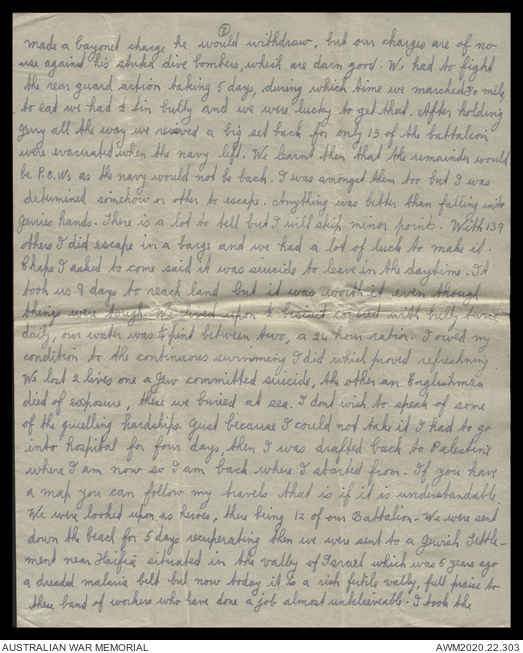 ②
made a bayonet charge he would withdraw, but our charges are of no
use against his stuka dive bombers, which are darn good. We had to fight
the rear guard action taking 5 days, during which time we marched 30 mile
to eat we had ½ tin bully and we were lucky to get that. After holding
Jerry all the way we received a big set back for only 13 of the battalion
were evacuated when the navy left. We learnt then that the remainder would
be P.O.Ws as the navy would not be back. I was amongst them too but I was
determined somehow or other to escape. Anything was better than falling into
Jerries hands. There is a lot to tell but I will skip minor points. With 139
others I did escape in a barge and we had a lot of luck to make it.
Chaps I asked to come said it was suicide to leave in the daytime. It
took us 9 days to reach land but it was worth it even though
things were tough. We lived upon ½ biscuit covered with bully twice
daily, our water was ¼ pint between two, a 24 hour ration. I owed my
condition to the continuous swimming I did which proved refreshing
We lost 2 lives one a Jew committed suicide, the other an Englishman
died of exposure, these we buried at sea. I dont wish to speak of some
of the gruelling hardships. Just because I could not take it I had to go
into hospital for four days, then I was drafted back to Palestine
where I am now so I am back where I started from. If you have
a map you can follow my travels that is if it is understandable
We were looked upon as heroes, there being 12 of our Battalion. We were sent
down the beach for 5 days recuperating then we were sent to a Jewish Settle-
ment near Haifia situated in the valley of Israel which was 5 years ago
a dreaded malaria belt but now today it is a rich fertile valley, full praise to
these band of workers who have done a job almost unbelieveable. I took the
AUSTRALIAN WAR MEMORIAL
AWM2020.22.303